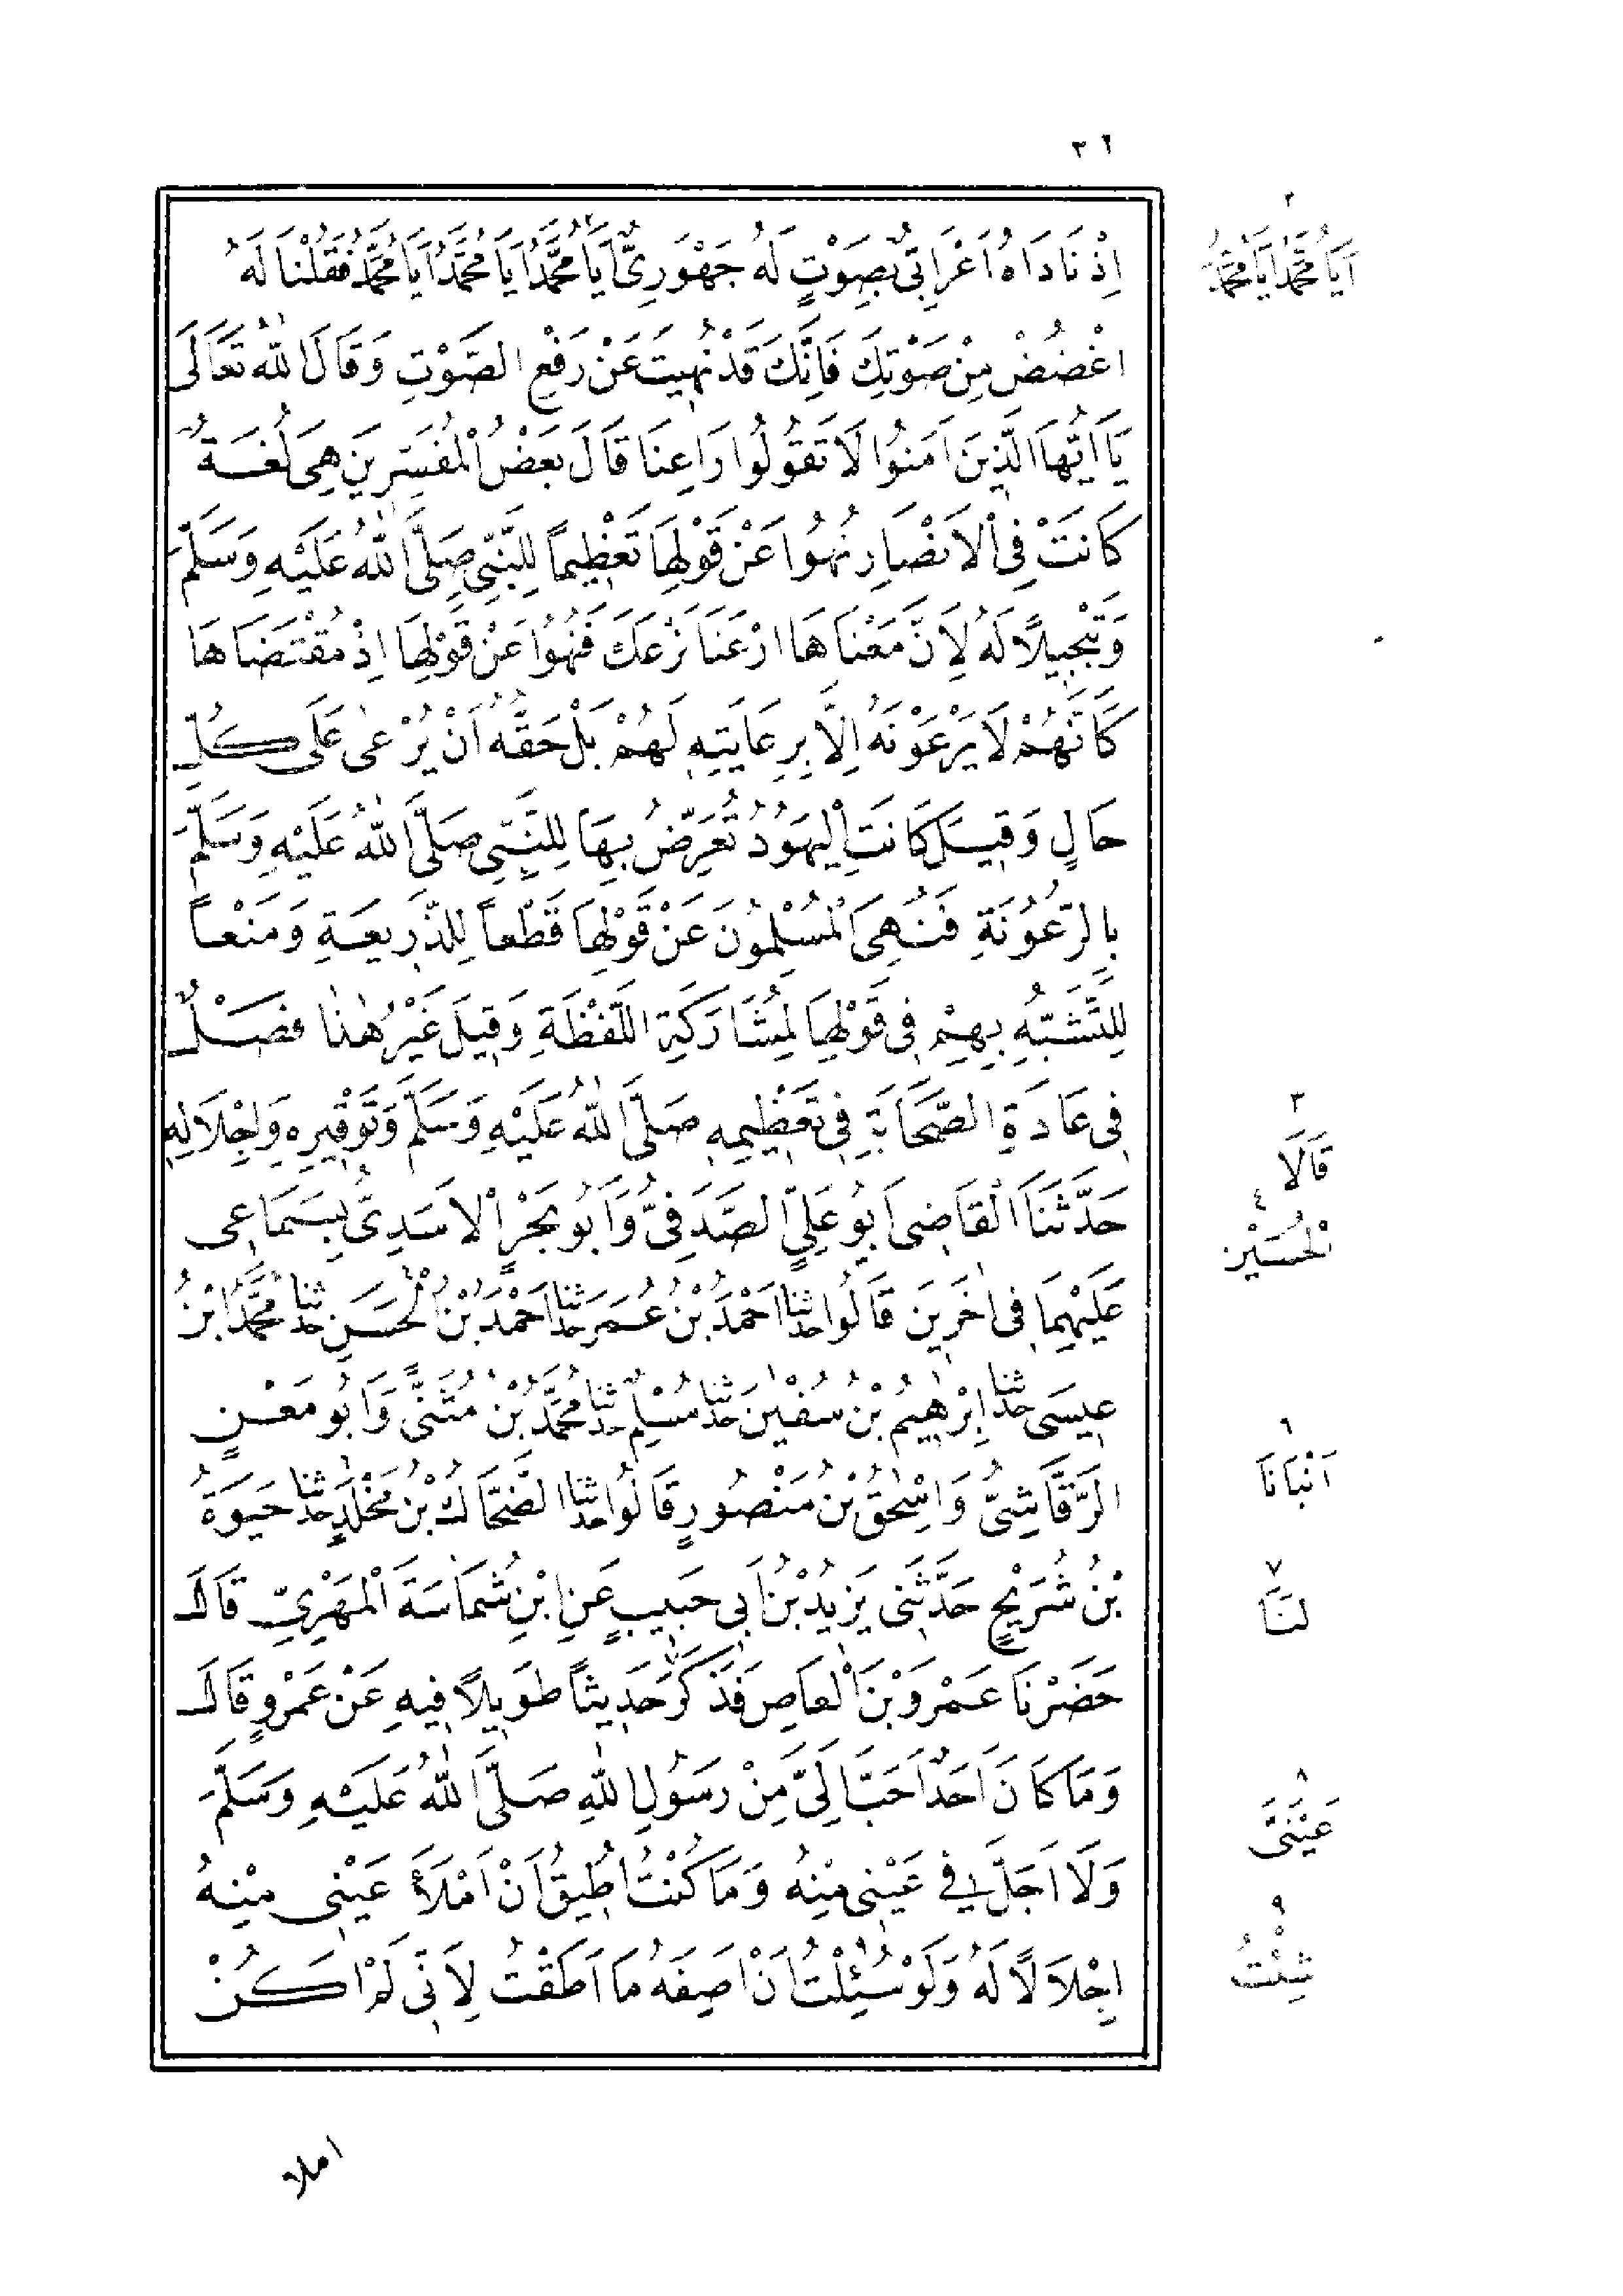 ٣٢
اِذْ نَادَاهُ اَعْرَابِىٌّ بِصَوْتٍ لَهُ جَهْوَرِىٍّ اَيَا مُحَمَّدُ اَيَا مُحَمَّدُ اَيَا مُحَمَّدُ فَقُلْنَا لَهُ
اغْضُضْ مِنْ صَوْتِكَ فَاِنَّكَ قَدْ نُهِيتَ عَنْ رَفْعِ الصَّوْتِ وَقَالَ اللهُ تَعَالَى
يَا اَيُّهَا الَّذِينَ اٰمَنُوا لَا تَقُولُوا رَاعِنَا قَالَ بَعْضُ الْمُفَسِّرِينَ هِىَ لُغَةٌ
كَانَتْ فِى الْاَنْصَارِ نُهُوا عَنْ قَوْلِهَا تَعْظِيماً لِلنَّبِىِّ صَلَّى اللهُ عَلَيْهِ وَسَلَّمَ
وَتَبْجِيلاً لَهُ لِاَنَّ مَعْنَاهَا ارْعَنَا نَرْعَكَ فَنُهُوا عَنْ قَوْلِهَا اِذْ مُقْتَضَاهَا
كَاَنَّهُمْ لَا يَرْعَوْنَهُ اِلَّا بِرِعَايَتِهِ لَهُمْ بَلْ حَقُّهُ اَنْ يُرْعٰى عَلَى كُلِّ
حَالٍ وَقِيلَ كَانَتِ الْيَهُودُ تُعَرِّضُ بِهَا لِلنَّبِىِّ صَلَّى اللهُ عَلَيْهِ وَسَلَّمَ
بِالرُّعُونَةِ فَنُهِىَ الْمُسْلِمُونَ عَنْ قَوْلِهَا قَطْعاً لِلذَّرِيعَةِ وَمَنْعاً
لِلتَّشَبُّهِ بِهِمْ فِى قَوْلِهَا لِمُشَارَكَةِ اللَّفْظَةِ وَقِيلَ غَيْرُ هٰذَا فَصْلٌ
فِى عَادَةِ الصَّحَابَةِ فِى تَعْظِيمِهِ صَلَّى اللهُ عَلَيْهِ وَسَلَّمَ وَتَوْقِيرِهِ وَاِجْلَالِهِ
حَدَّثَنَا الْقَاضِى اَبُو عَلِىٍّ الصَّدَفِىُّ وَاَبُو بَحْرٍ الْاَسَدِىُّ بِسَمَاعِى
عَلَيْهِمَا فِى اٰخَرِينَ قَالُوا حدثنا اَحْمَدُ بْنُ عُمَرَ حدثنا اَحْمَدُ بْنُ الْحَسَنِ حدثنا مُحَمَّدُ ابْنُ
عِيسَى حدثنا اِبْرٰهِيمُ بْنُ سُفْيٰنَ حدثنا مُسْلِمٌ حدثنا مُحَمَّدُ بْنُ مُثَنًّى وَاَبُو مَعْنٍ
الرَّقَاشِىُّ وَاِسْحٰقُ بْنُ مَنْصُورٍ قَالُوا حدثنا الضَّحَّاكُ بْنُ مَخْلَدٍ حدثنا حَيْوَةُ
بْنُ شُرَيْحٍ حَدَّثَنِى يَزِيدُ بْنُ اَبِى حَبِيبٍ عَنِ ابْنِ شُمَاسَةَ الْمَهْرِىِّ قَالَ
حَضَرْنَا عَمْرَو بْنَ الْعَاصِ فَذَكَرَ حَدِيثاً طَوِيلاً فِيهِ عَنْ عَمْرٍو قَالَ
وَمَا كَانَ اَحَدٌ اَحَبَّ اِلَىَّ مِنْ رَسُولِ اللهِ صَلَّى اللهُ عَلَيْهِ وَسَلَّمَ
وَلَا اَجَلَّ فِى عَيْنِى مِنْهُ وَمَا كُنْتُ اُطِيقُ اَنْ اَمْلَأَ عَيْنِى مِنْهُ
اِجْلَالاً لَهُ وَلَوْ سُئِلْتُ اَنْ اَصِفَهُ مَا اَطَقْتُ لِاَنِّى لَمْ اَكُنْ
٢
اَيَا مُحَمَّدُ اَيَا مُحَمَّدُ
٣
قَالَا
٤
الْحُسَيْنِ
٦
اَنْبَانَا
٧
لَنَا
٨
عَيْنَىَّ
٩
شِئْتُ
املا